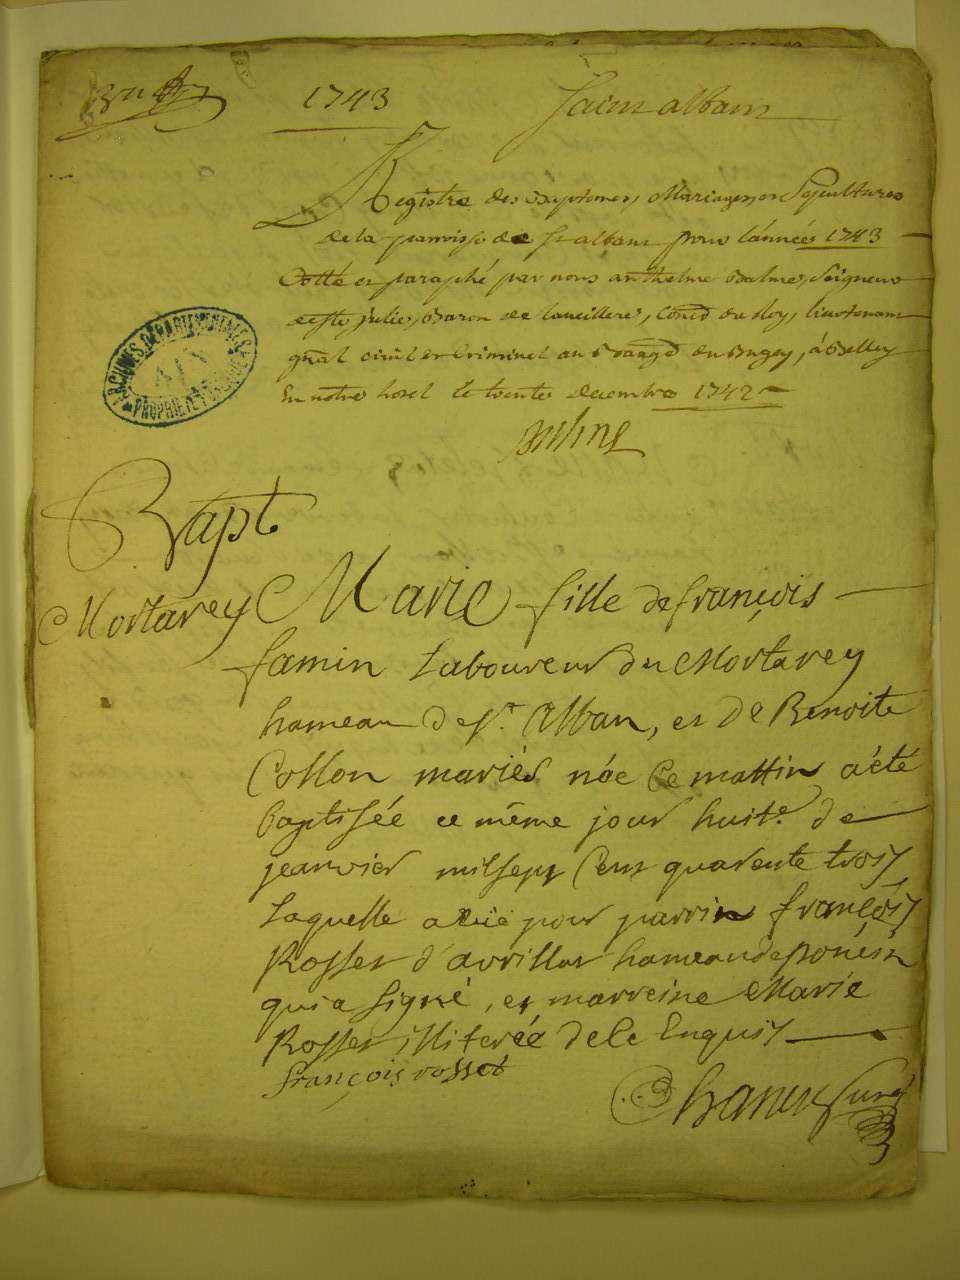 1743
Saint alban
Registre des Baptemes, Mariages, et Sepultures
de la parroisse de St alban pour l'année 1743
Cotté et paraphé par nous anthelme Balme, Seigneur
de Ste Julie, Baron de
gnal civil et Criminel au du Bugey, à Belley
En notre hotel le trente decembre 1742
ARCHIVES DÉPARTEMENTALES
AIN
PROPRIÉTÉ PUBLIQUE
Bapt
Mortarey Marie fille de françois
famin Laboureur du Mortarey
hameau de St. Alban, et de Benoite
Collon mariés née Ce mattin a été
baptisée ce même jour huite. de
jeanvier mil sept Cent quarente trois
Laquelle a eüe pour parrin françois
Rosset d'avrillat hameau de Poncin
qui a signé, et marreine Marie
Rosset illiterée de Le Enquis
françois rosset
Curé